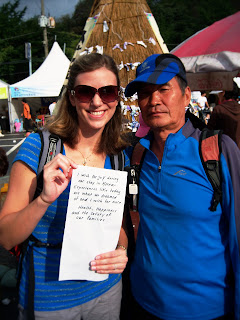 I wish for joy during
our stay in Korea.
Experiences like today
are what we dreamed
of and I wish for more.
Health, happiness
and the safety of
our families.